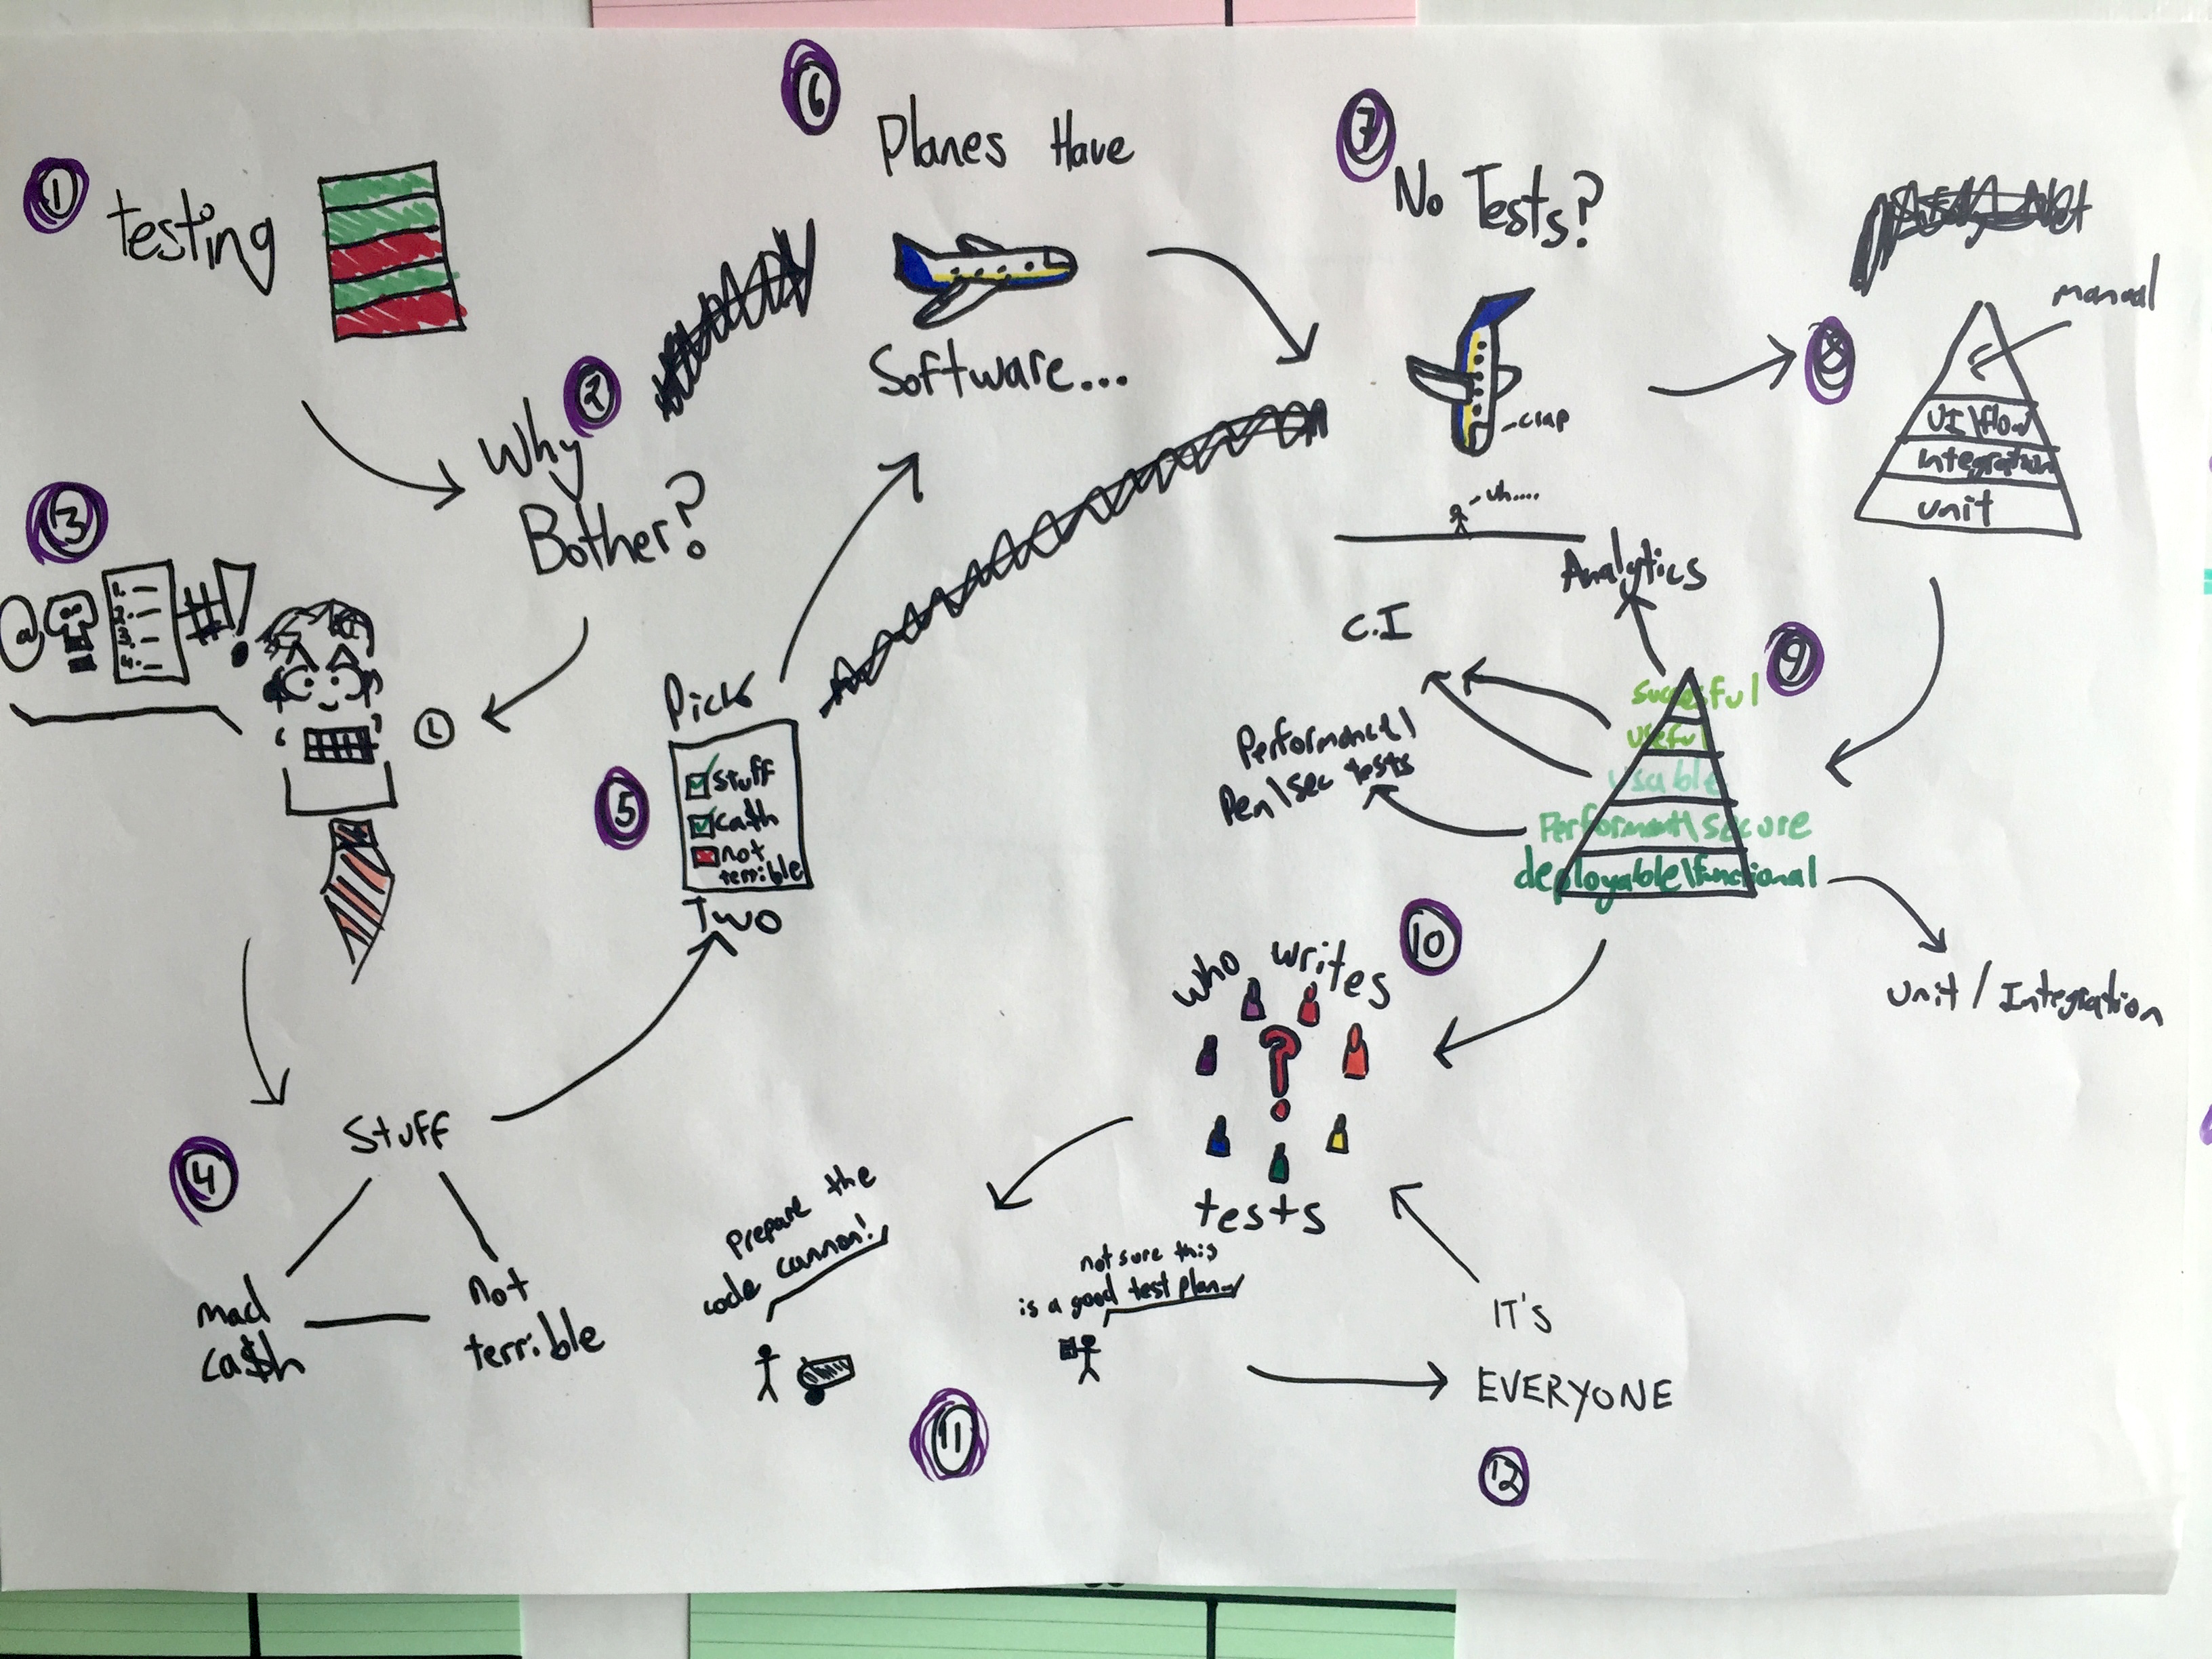 1
testing
2
Why
Bother?
3
@
1.
2.
3.
4.
#!
L
4
Stuff
mad
ca$h
not
terrible
5
Pick
stuff
ca$h
not
terrible
Two
6
Planes Have
Software...
7
No Tests?
crap
uh....
8
manual
UI\flow
Integration
unit
9
succesful
useful
usable
Performant\secure
deployable\functional
Analytics
C.I
Performance\
Pen\sec tests
unit / Integration
10
who writes
?
tests
11
prepare the
code cannon!
not sure this
is a good test plan
12
IT's
EVERYONE